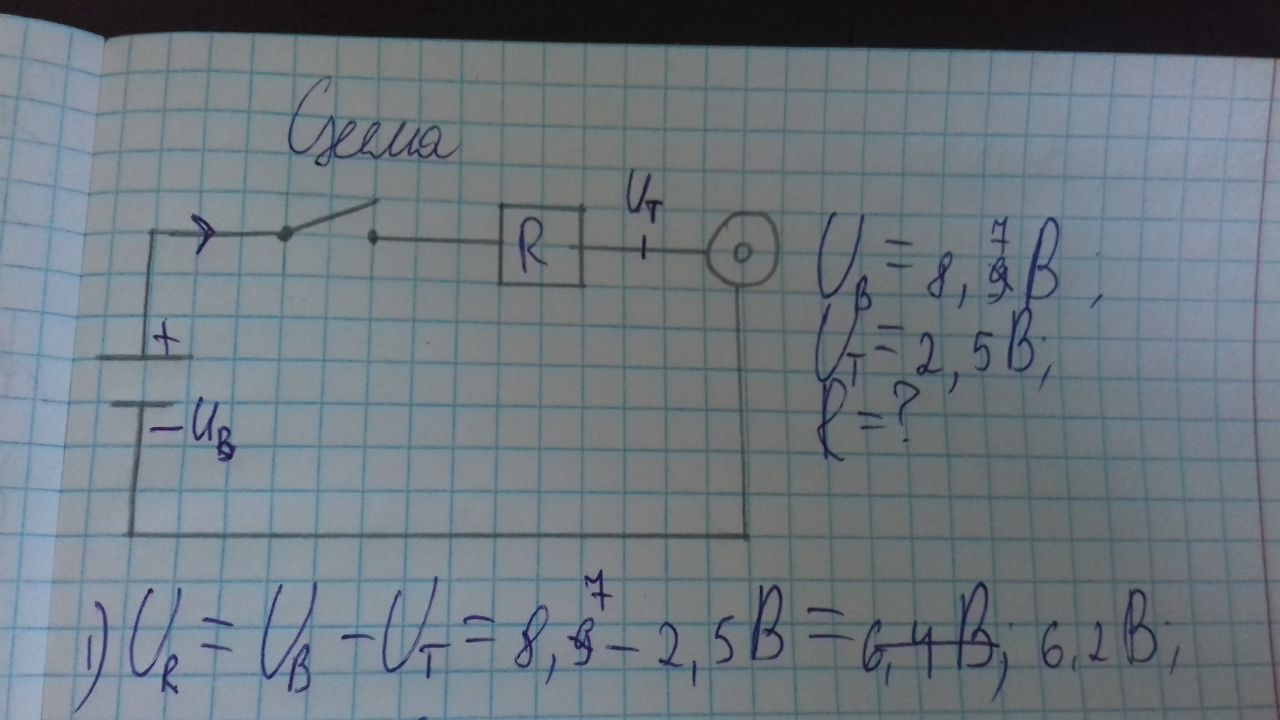 Схема
U_T
R
+
-U_B
U_B = 8,7 В;
U_T = 2,5 В;
R = ?
1) U_R = U_B - U_T = 8,7 - 2,5 В = 6,4 В; 6,2 В;